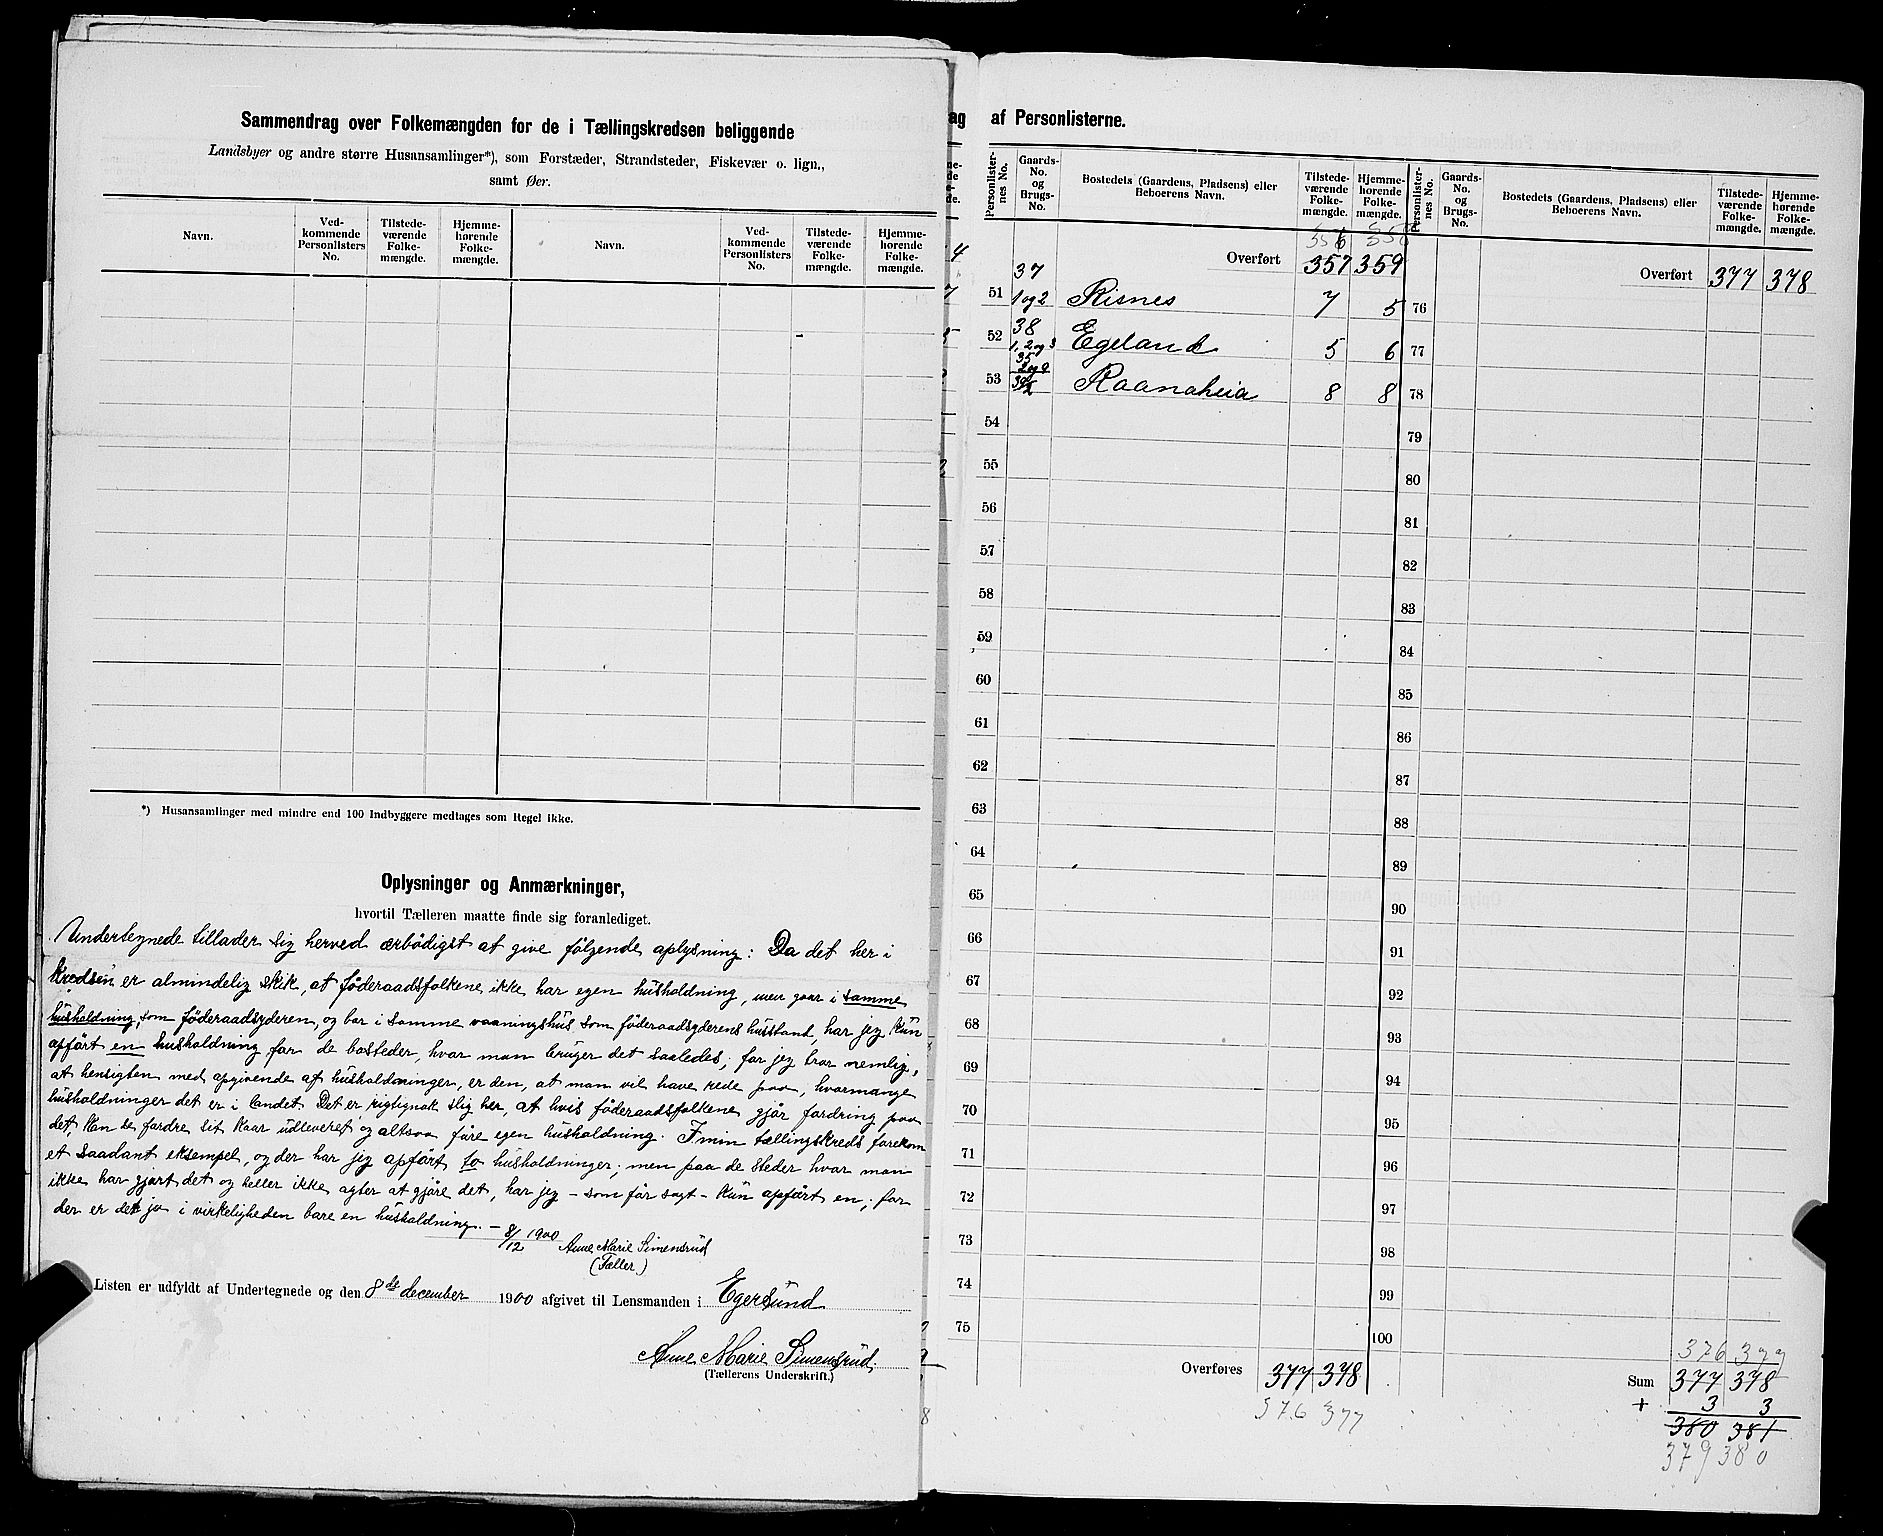 Sammendrag over Folkemængden for de i Tællingskredsen beliggende
Landsbyer og andre större Husansamlinger*), som Forstæder, Strandsteder, Fiskevær o. lign.,
samt Øer.
Navn. Ved-kommende Personlisters No. Tilstede-værende Folke-mængde. Hjemme-hørende Folke-mængde. Navn. Ved-kommende Personlisters No. Tilstede-værende Folke-mængde. Hjemme-hørende Folke-mængde.
*) Husansamlinger med mindre end 100 Indbyggere medtages som Regel ikke.
Oplysninger og Anmærkninger,
hvortil Tælleren maatte finde sig foranlediget.
Undertegnede tillader sig herved ærbödigst at give fölgende oplysning: Da det her i
kredsen er almindelig skik, at föderaadsfolkene ikke har egen husholdning, men gaar i samme
husholdning, som föderaadsyderen, og bor i samme vaaningshus som föderaadsyderens husstand, har jeg kun
opfört en husholdning for de bosteder, hvor man bruger det saaledes; for jeg tror nemlig,
at hensigten med opgivende af husholdninger, er den, at man vil have rede paa, hvormange
husholdninger det er i landet. Det er rigtignok slig her, at hvis föderaadsfolkene gjör fordring paa
det, kan de fordre sit kaar udleveret og altsaa före egen husholdning. I min tællingskreds forekom
et saadant eksempel, og der har jeg opfört to husholdninger; men paa de steder hvor man
ikke har gjort det og heller ikke agter at gjöre det, har jeg – som för sagt – kun opfört en; for
der er det jo i virkeligheden bare en husholdning. –
8/12 1900 Anne Marie Simensrud
(Tæller)
Listen er udfyldt af Undertegnede og den 8de december 1900 afgivet til Lensmanden i Egersund
Anne Marie Simensrud.
(Tællerens Underskrift.)
ag af Personlisterne.
Personlister-nes No. Gaards-No. og Brugs-No. Bostedets (Gaardens, Pladsens) eller Beboerens Navn. Tilstede-værende Folke-mængde. Hjemme-hørende Folke-mængde. Personlister-nes No. Gaards-No. og Brugs-No. Bostedets (Gaardens, Pladsens) eller Beboerens Navn. Tilstede-værende Folke-mængde. Hjemme-hørende Folke-mængde.
356 358
Overført 357 359 Overført 377 378
51 37 1 og 2 Risnes 7 5 76
52 38 1, 2 og 3 Egeland 5 6 77
53 35 Raanaheia 8 8 78
54 79
55 80
56 81
57 82
58 83
59 84
60 85
61 86
62 87
63 88
64 89
65 90
66 91
67 92
68 93
69 94
70 95
71 96
72 97
73 98
74 99
75 100
376 377
Overføres 377 378 Sum 377 378
376 377 + 3 3
380 381
379 380